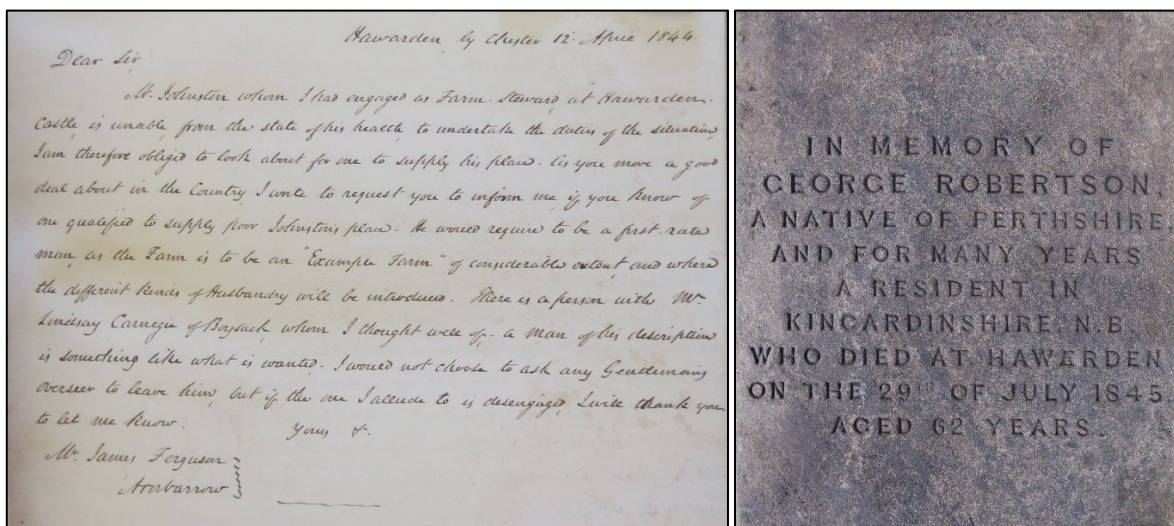 Hawarden by Chester 12 April 1844
Dear Sir
Mr. Johnston whom I had engaged as Farm-Steward at Hawarden
Castle is unable, from the state of his health, to undertake the duties of the situation,
I am therefore obliged to look about for one to supply his place. As you move a good
deal about in the Country, I write to request you to inform me if you know of
one qualified to supply poor Johnston's place. He would require to be a first rate
man, as the Farm is to be an "Example Farm" of considerable extent, and where
the different kinds of Husbandry will be introduced. There is a person with Mr.
Lindsay Carnegie of Boysack whom I thought well of - a man of his description
is something like what is wanted. I would not choose to ask any Gentleman's
overseer to leave him, but if the one I allude to is disengaged, I will thank you
to let me know.
Yours &.
Mr. James Ferguson
IN MEMORY OF
GEORGE ROBERTSON,
A NATIVE OF PERTHSHIRE
AND FOR MANY YEARS
A RESIDENT IN
KINCARDINSHIRE N.B.
WHO DIED AT HAWERDEN
ON THE 29TH OF JULY 1845
AGED 62 YEARS.